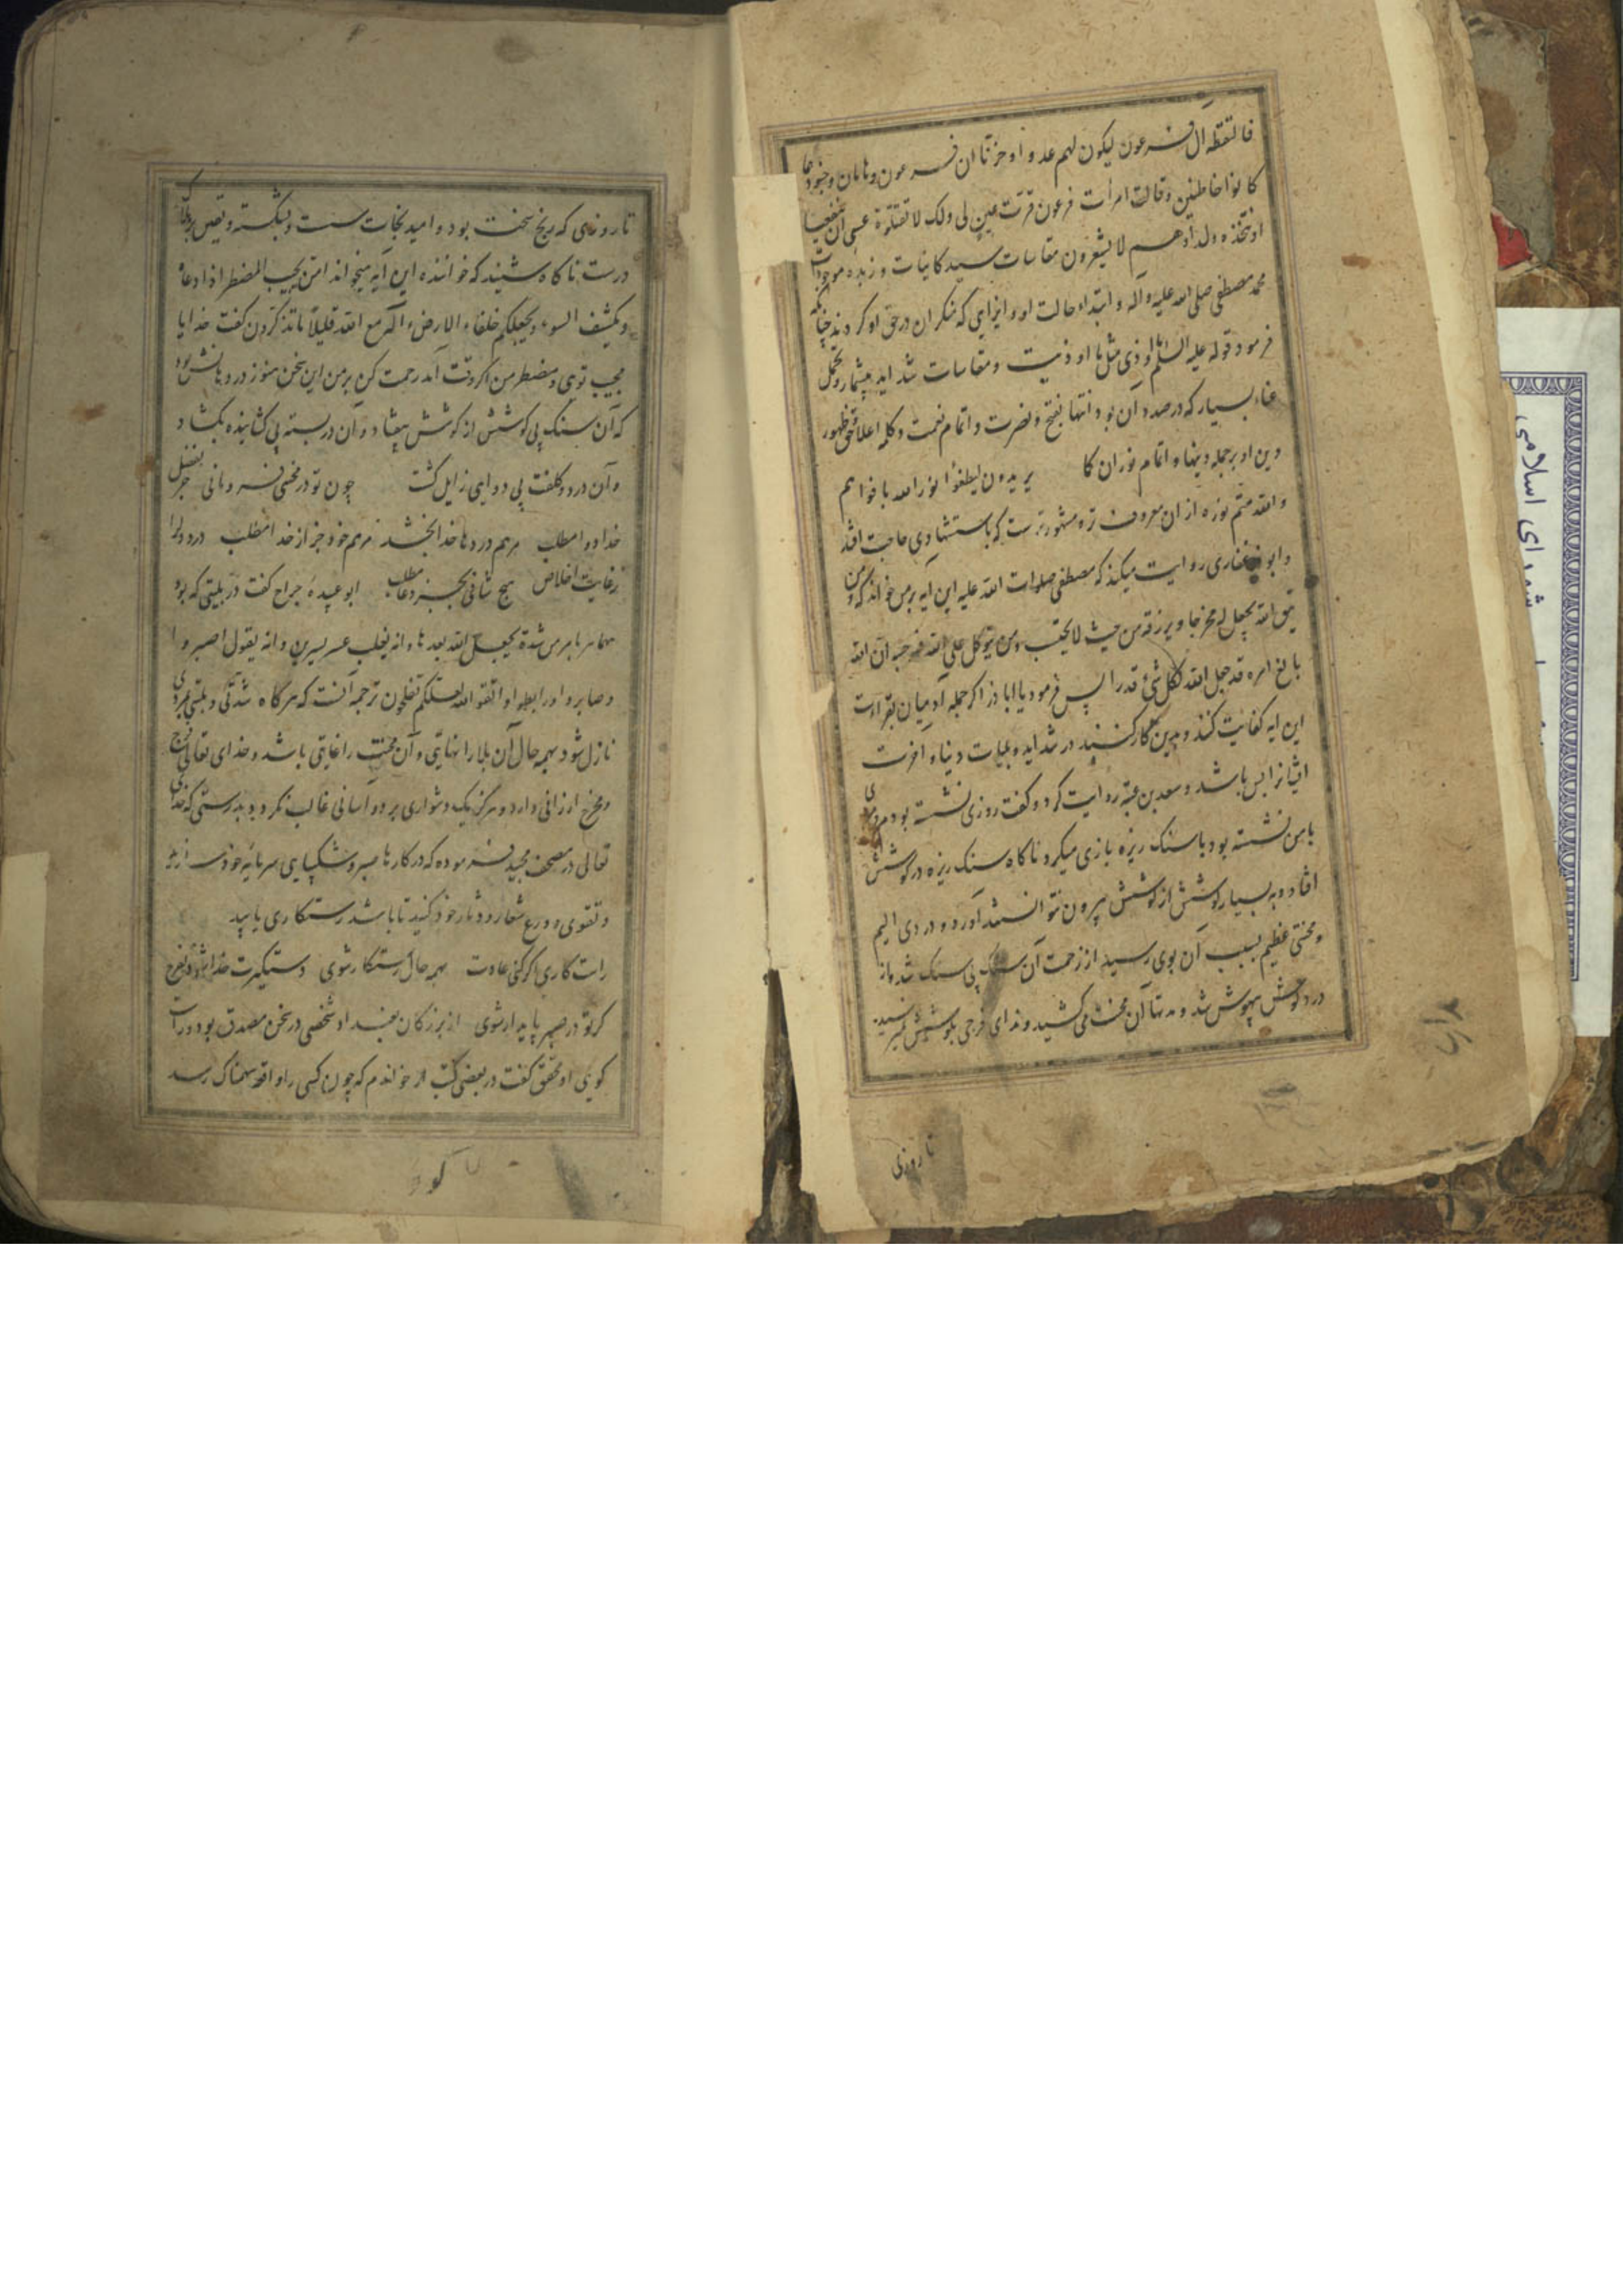 فالتقطه آل فرعون لیکون لهم عدوا و حزنا ان فرعون و هامان و جنودهما
کانوا خاطئین و قالت امرأت فرعون قرت عین لی ولک لا تقتلوه عسی ان ینفعنا
او نتخذه ولدا و هم لا یشعرون مقاسات سید کاینات و زبده موجودات
محمد مصطفی صلی الله علیه و آله و ابتداء حالت او و ایزای که منکران در حق او کردند چنانکه
فرمود قوله علیه السلام ما اوذی مثل ما اوذیت و مقاسات شداید بیشمار و تحمل
عناء بسیار که در صدد آن بود انتها بفتح و نصرت و اتمام نعمت و کلمه اعلا حق ظهور
دین او بر جمله دینها و اتمام نوران کا یریدون لیطفؤا نور الله بافواههم
و الله متم نوره از ان معروف تر و مشهورترست که باستشهادی حاجت افتد
و ابوذر غفاری روایت میکند که مصطفی صلوات الله علیه این آیه بر من خواند که و من
یتق الله یجعل له مخرجا و یرزقه من حیث لا یحتسب و من یتوکل علی الله فهو حسبه ان الله
بالغ امره قد جعل الله لکل شئ قدرا پس فرمود یا اباذر اگر جمله آدمیان بقراءت
این ایه کفایت کنند و بدین کار کنند در شداید و بلیات دنیا و اخرت
ایشانرا بس باشد و سعد بن عتبه روایت کرد و کفت روزی نشسته بودم مردی
با من نشسته بود با سنک ریزه بازی میکرد ناکاه سنک ریزه در کوشش
افتاد و به بسیار کوشش از کوشش بیرون نتوانستند آورد و دردی الیم
و محنتی عظیم بسبب آن بوی رسید از زحمت آن سنک بی سنک شد و از
درد کوش بیهوش شد و مدتها آن محنت می کشید و ندای فرجی بکوشش نمیرسید
تا روزی
تا روزی که رنج سخت بود و امید نجات سست و بشکسته و
درست ناکاه شنید که خواننده این آیه میخواند امن یجیب المضطر اذا دعاه
و یکشف السوء و یجعلکم خلفاء الارض ءاله مع الله قلیلا ما تذکرون کفت خدایا
مجیب توی و مضطر من اکر وقت آمد رحمت کن بر من این سخن هنوز در دهانش بود
که آن سنک بی کوشش از کوشش بیفتاد و آن در بسته بی کشاینده بکشاد
و آن درد و کلفت بی دوای زایل کشت چون تو در محنتی فرومانی جز بفضل
خدا دوا مطلب مرهم دردها خدا بخشد مرهم خود جز از خدا مطلب درد دل را
ز غایت اخلاص هیچ شافی بجز دعا مطلب ابو عبیدهٔ جراح کفت در بلیتی که بود
مهما نزل بامرئ شدة یجعل الله بعدها و انه یغلب عسر یسرین و انه یقول اصبروا
و صابروا و رابطوا و اتقوا الله لعلکم تفلحون ترجمه آنست که هرکاه شدتی و بلیتی بمردی
نازل شود بهمه حال آن بلا را نهایتی و آن محنت را غایتی باشد و خدای تعالی فرج
و مخرج ارزانی دارد و هرکز یک دشواری بر دو آسانی غالب نکردد بدرستی که خدای
تعالی در مصحف مجید فرموده که در کارها صبر و شکیبایی سرمایه خود سازید
و تقوی و ورع شعار و دثار خود کنید تا باشد رستکاری یابید
راست کاری اکر کنی عادت بهمه حال رستکار شوی دستکیرت خدا شود بفرج
کر تو در صبر پایدار شوی از بزرکان بغداد شخصی در سخن مصدق بود و راست
کوی او محقق کفت در بعضی کتب از خواندم که چون کسی را واقعه سهمناک رسد
شورای اسلامی